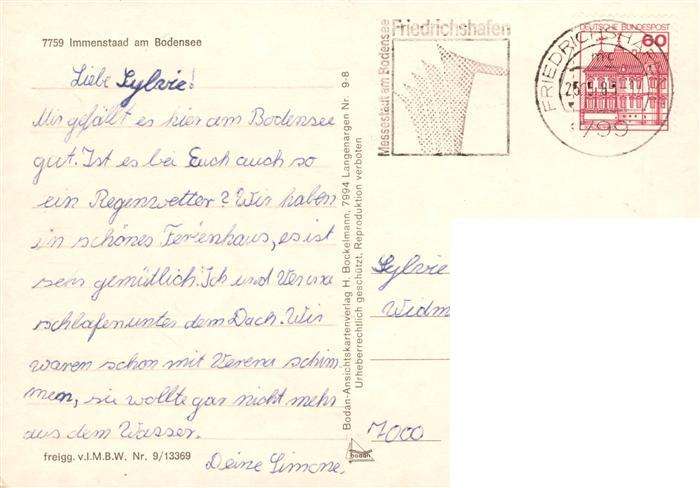 7759 Immenstaad am Bodensee
Liebe Sylvie!
Mir gefällt es hier am Bodensee
gut. Ist es bei Euch auch so
ein Regenwetter? Wir haben
ein schönes Ferienhaus, es ist
sers gemütlich. Ich und Verena
schlafen unter dem Dach. Wir
waren schon mit Verena schim
men, sie wollte gar nicht mehr
aus dem Wasser.
Deine Simone.
freigg. v. I.M.B.W. Nr. 9/13369
Bodan-Ansichtskartenverlag H. Bockelmann, 7994 Langenargen Nr. 9-8
Urheberrechtlich geschützt. Reproduktion verboten
bodan
Messestadt am Bodensee
Friedrichshafen
FRIEDRICHSHAFEN
mc
799
DEUTSCHE BUNDESPOST
60
Sylvie
Widm
7000